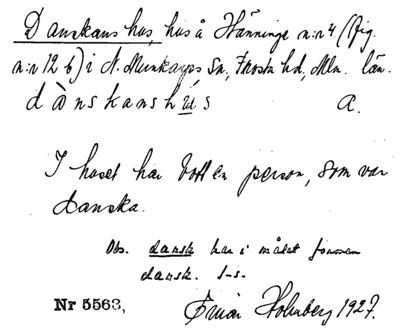 Danskans hus, hus å Hänninge n:r 4 (fig.
n:r 12 b) i N. Munkarps sn, Frosta hd, Mlm. län.
dànskanshùs A.
I huset har bott en person, som var
danska.
Obs. dansk har i målet formen
dansk.
Nr 5563, Holmberg 1927.